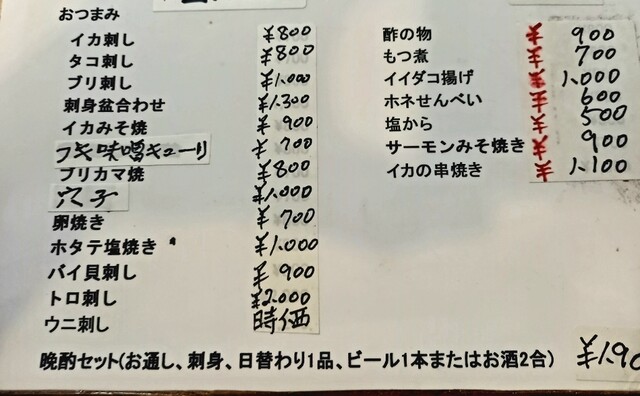 おつまみ
イカ刺し ¥800
タコ刺し ¥800
ブリ刺し ¥1,000
刺身盆合わせ ¥1,300
イカみそ焼 ¥900
フキ味噌キューリ ¥700
ブリカマ焼 ¥800
穴子 ¥1,000
卵焼き ¥700
ホタテ塩焼き ¥1,000
バイ貝刺し ¥900
トロ刺し ¥2,000
ウニ刺し 時価
酢の物 ¥900
もつ煮 ¥700
イイダコ揚げ ¥1,000
ホネせんべい ¥600
塩から ¥500
サーモンみそ焼き ¥900
イカの串焼き ¥1,100
晩酌セット(お通し、刺身、日替わり1品、ビール1本またはお酒2合) ¥1,90